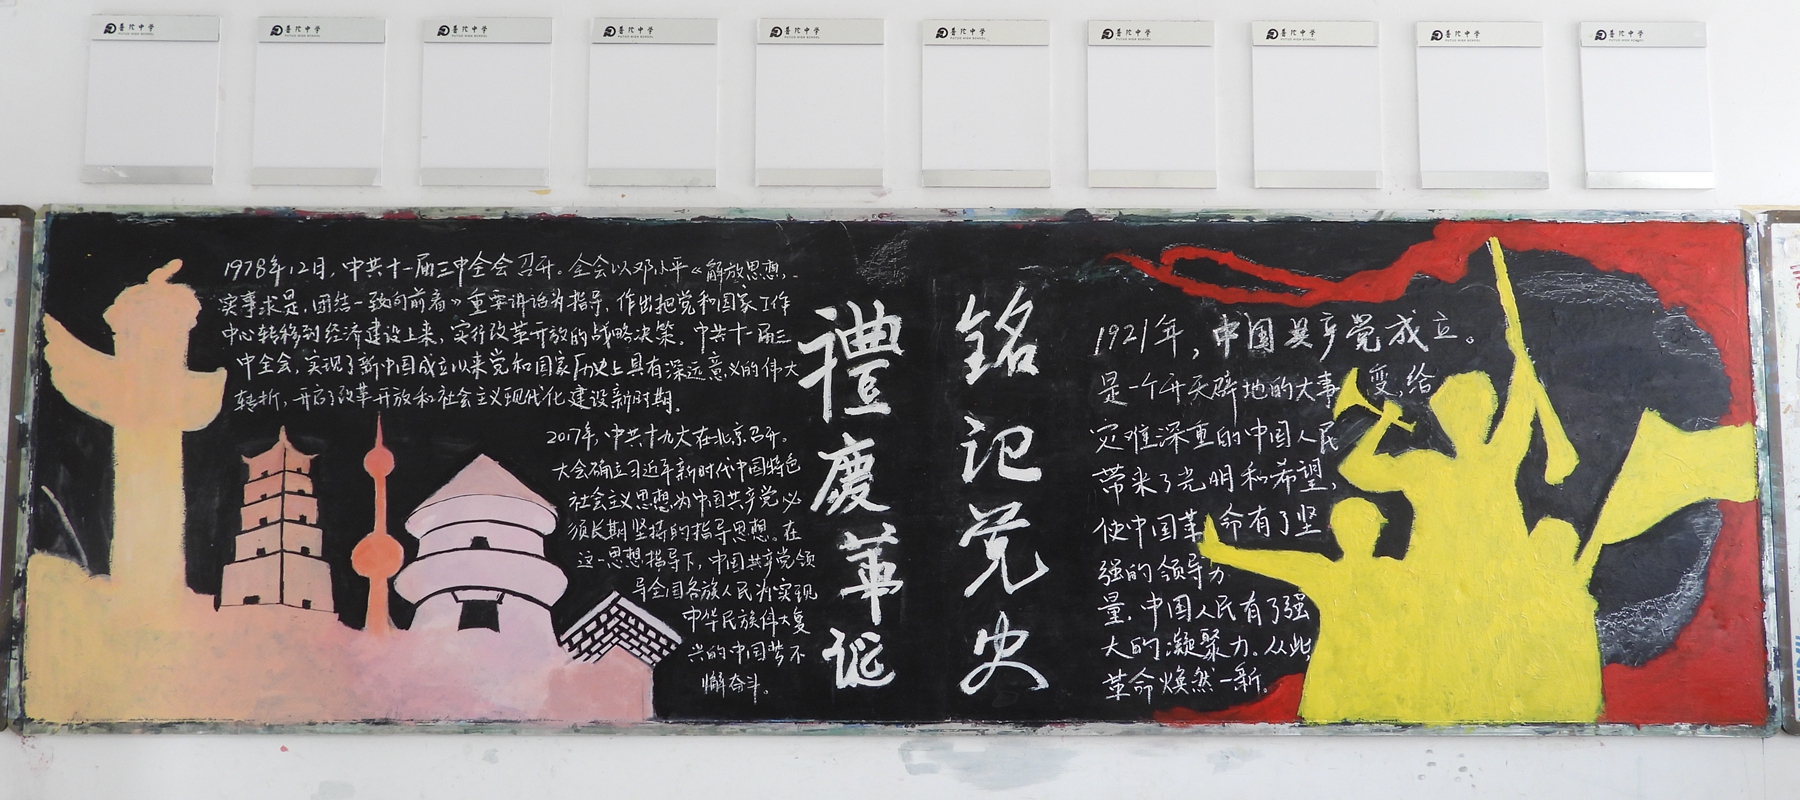 普陀中学
普陀中学
普陀中学
普陀中学
普陀中学
普陀中学
普陀中学
普陀中学
普陀中学
普陀中学
1978年12月,中共十一届三中全会召开。全会以邓小平《解放思想,
实事求是,团结一致向前看》重要讲话为指导,作出把党和国家工作
中心转移到经济建设上来,实行改革开放的战略决策。中共十一届三
中全会,实现了新中国成立以来党和国家历史上具有深远意义的伟大
转折,开启了改革开放和社会主义现代化建设新时期。
2017年,中共十九大在北京召开。
大会确立习近平新时代中国特色
社会主义思想为中国共产党必
须长期坚持的指导思想。在
这一思想指导下,中国共产党领
导全国各族人民为实现
中华民族伟大复
兴的中国梦不
懈奋斗。
禮慶華诞
铭记党史
1921年,中国共产党成立。
是一个开天辟地的大事变,给
灾难深重的中国人民
带来了光明和希望,
使中国革命有了坚
强的领导力
量,中国人民有了强
大的凝聚力。从此,
革命焕然一新。